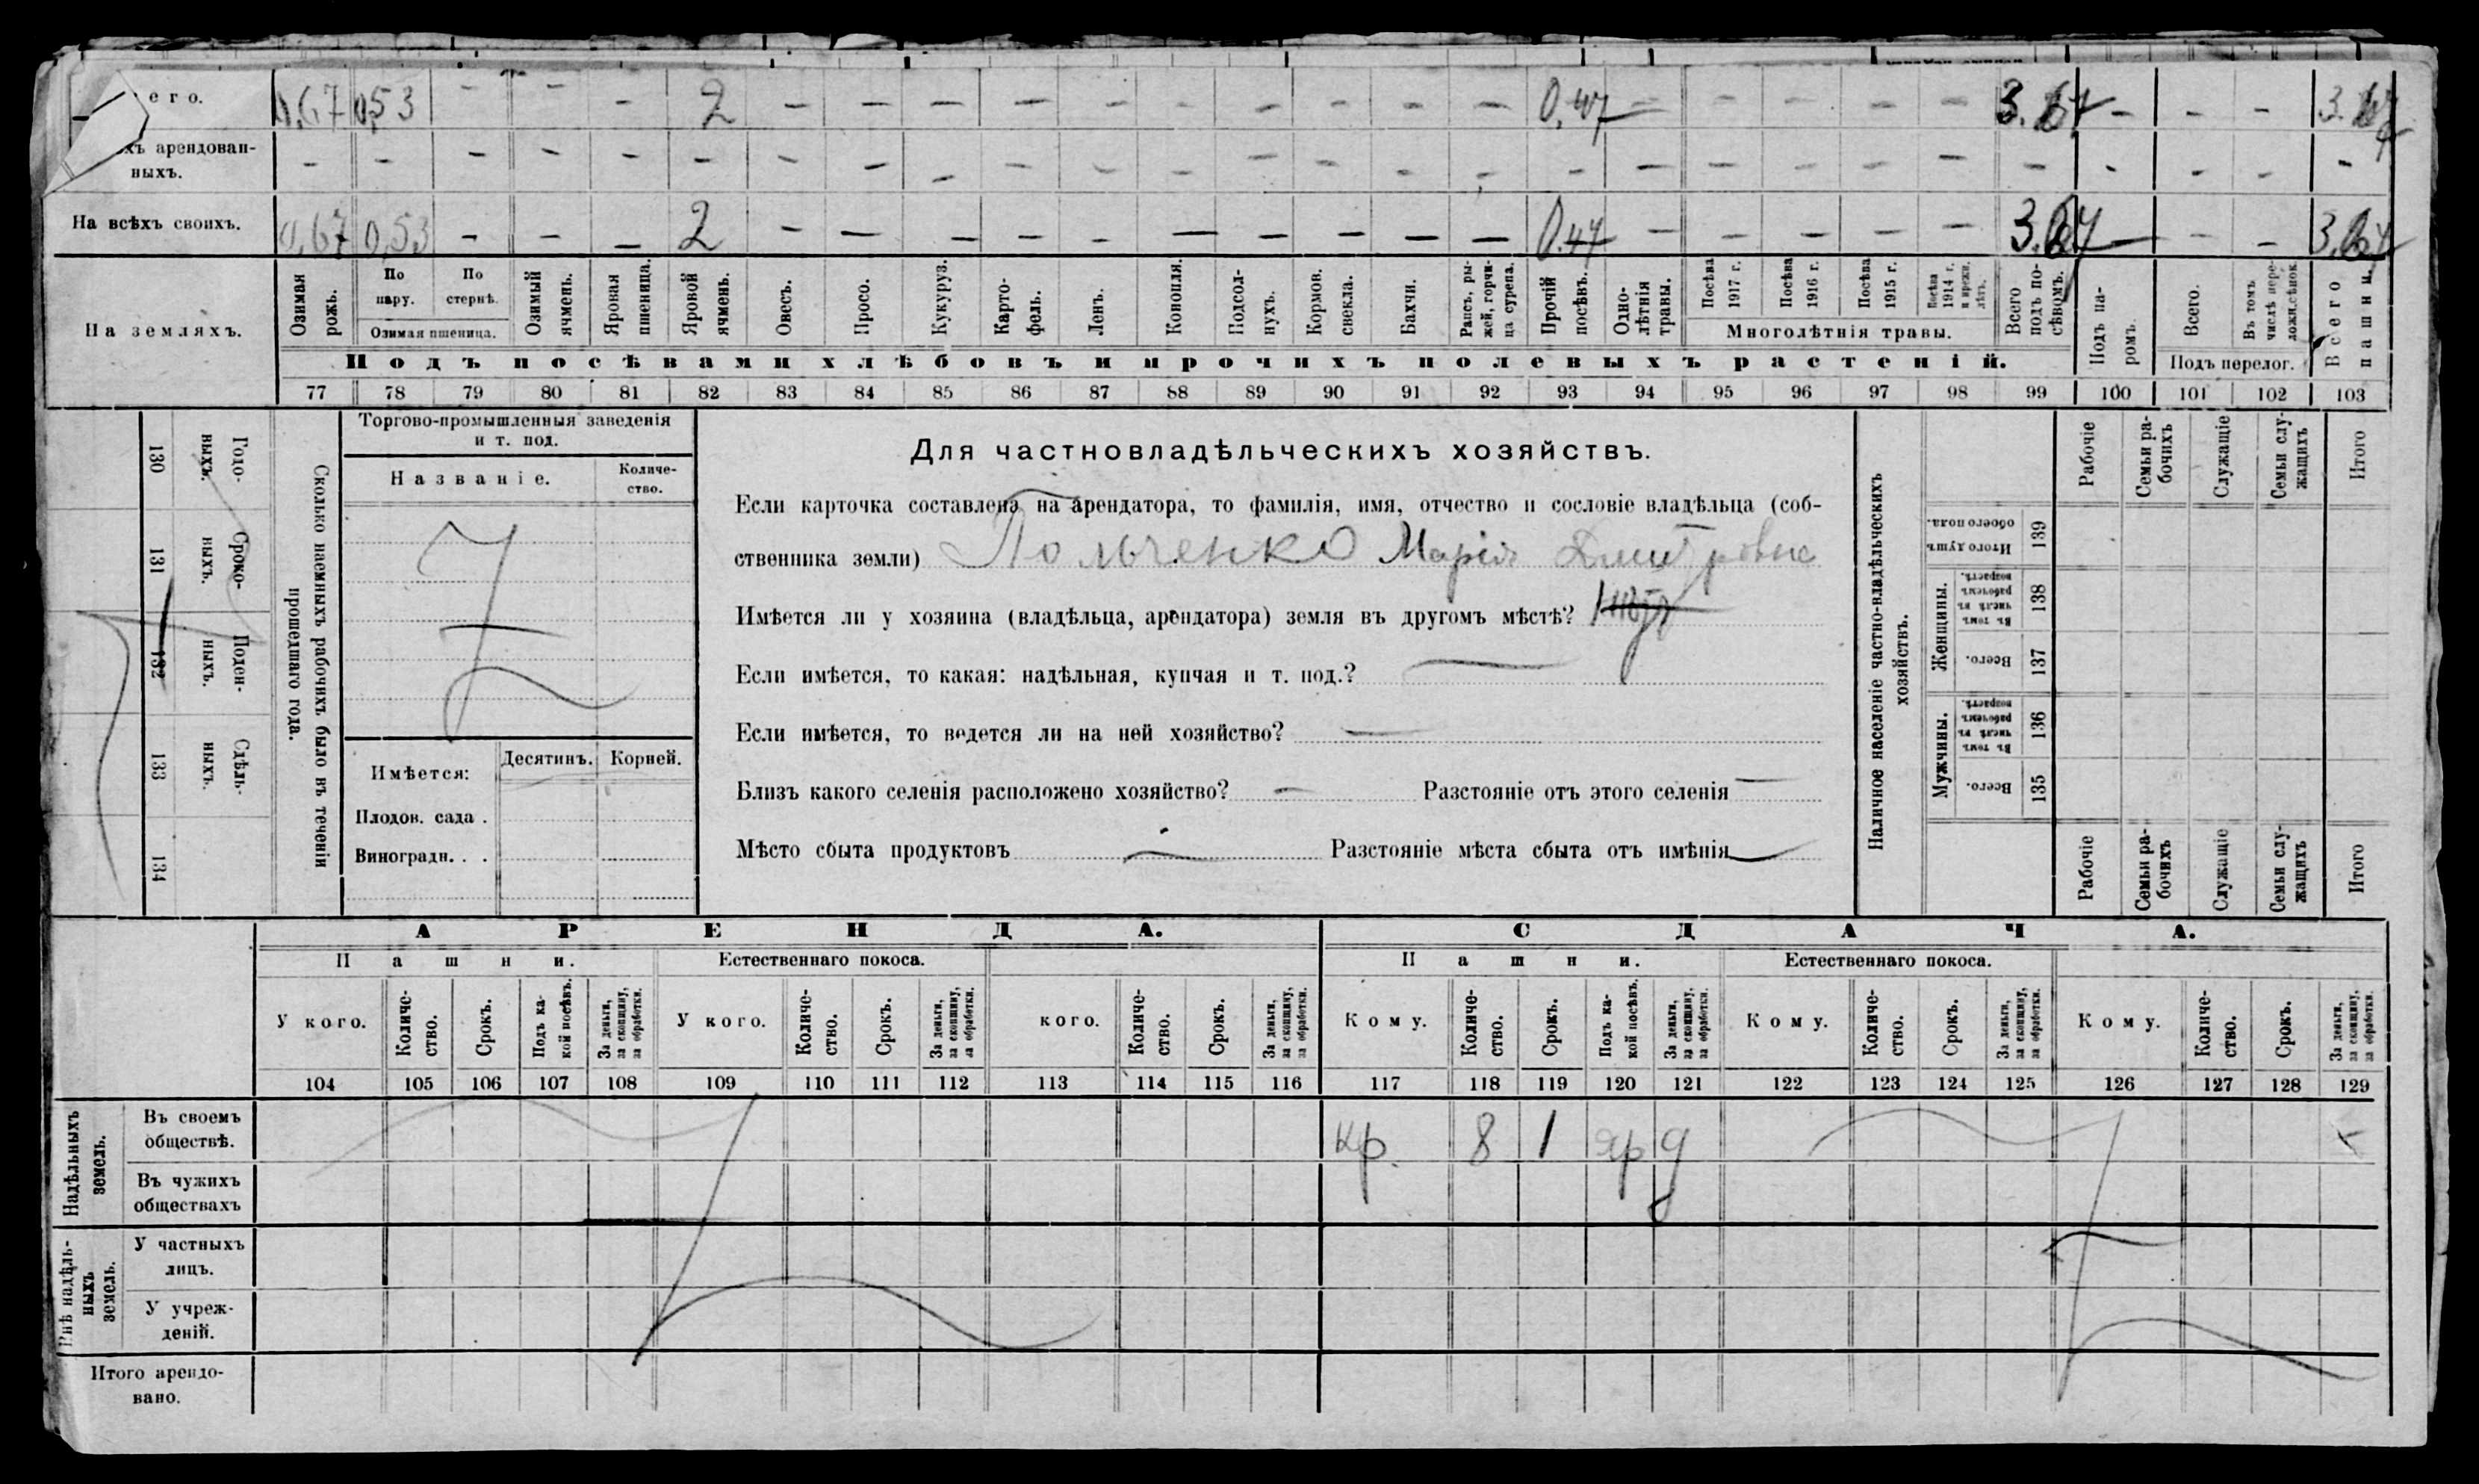 его. 0,67 0,53 - - - 2 - - - - - - - - - - 0,47 - - - - - 3.67 - - - 3.67
хъ арендован-
ныхъ. - - - - - - - - - - - - - - - - - - - - - - - - - - -
На всѣхъ своихъ. 0,67 0,53 - - - 2 - - - - - - - - - - 0.47 - - - - - 3.67 - - - 3.67
На земляхъ.
Озимая рожь.
По пару.
По стернѣ.
Озимая пшеница.
Озимый ячмень.
Яровая пшеница.
Яровой ячмень.
Овесъ.
Просо.
Кукуруз.
Карто-
фель.
Ленъ.
Конопля.
Подсол-
нухъ.
Кормов.
свекла.
Бахчи.
Рапсъ, ры-
жей, горчи-
ца сурепа.
Прочій посѣвъ.
Одно-
лѣтнія
травы.
Посѣва 1917 г.
Посѣва 1916 г.
Посѣва 1915 г.
Посѣва 1914 г. и прежн. лѣтъ.
Многолѣтнія травы.
Всего подъ по-
сѣвомъ.
Подъ па-
ромъ.
Всего.
Въ томъ числѣ пере-
ложн. сѣнок.
Подъ перелог.
Всего пашни.
Подъ посѣвами хлѣбовъ и прочихъ полевыхъ растеній.
77 78 79 80 81 82 83 84 85 86 87 88 89 90 91 92 93 94 95 96 97 98 99 100 101 102 103
Годо-
ныхъ.
130
Сроко-
ныхъ.
131
Поден-
ныхъ.
132
Сдѣль-
ныхъ.
133
134
Сколько наемныхъ рабочихъ было въ теченіи
прошедшаго года.
Торгово-промышленныя заведенія
и т. под.
Названіе.
Количе-
ство.
Имѣется:
Десятинъ. Корней.
Плодов. сада .
Виноградн. . .
Для частновладѣльческихъ хозяйствъ.
Если карточка составлена на арендатора, то фамилія, имя, отчество и сословіе владѣльца (соб-
ственника земли) Польченко Марія Дмитровна
Имѣется ли у хозяина (владѣльца, арендатора) земля въ другомъ мѣстѣ?
Если имѣется, то какая: надѣльная, купчая и т. под.? —
Если имѣется, то ведется ли на ней хозяйство? —
Близъ какого селенія расположено хозяйство? — Разстояніе отъ этого селенія —
Мѣсто сбыта продуктовъ — Разстояніе мѣста сбыта отъ имѣнія —
Наличное населеніе частно-владѣльческихъ
хозяйствъ.
Рабочіе
Семьи ра-
бочихъ
Служащіе
Семьи слу-
жащихъ
Итого
Итого душъ
обоего пола.
139
Женщины.
Въ томъ числѣ въ рабочемъ возрастѣ.
138
Всего.
137
Мужчины.
Въ томъ числѣ въ рабочемъ возрастѣ.
136
Всего.
135
Рабочіе
Семьи ра-
бочихъ
Служащіе
Семьи слу-
жащихъ
Итого
АРЕНДА. СДАЧА.
Пашни. Естественнаго покоса. Пашни. Естественнаго покоса.
У кого.
Количе-
ство.
Срокъ.
Подъ ка-
кой посѣвъ.
За деньги,
за скопщину,
за обработки.
У кого.
Количе-
ство.
Срокъ.
За деньги,
за скопщину,
за обработки.
кого.
Количе-
ство.
Срокъ.
За деньги,
за скопщину,
за обработки.
Кому.
Количе-
ство.
Срокъ.
Подъ ка-
кой посѣвъ.
За деньги,
за скопщину,
за обработки.
Кому.
Количе-
ство.
Срокъ.
За деньги,
за скопщину,
за обработки.
Кому.
Количе-
ство.
Срокъ.
За деньги,
за скопщину,
за обработки.
104 105 106 107 108 109 110 111 112 113 114 115 116 117 118 119 120 121 122 123 124 125 126 127 128 129
Надѣльныхъ
земель.
Въ своемъ
обществѣ. кр. 8 1 яр д
Въ чужихъ
обществахъ
Внѣ надѣль-
ныхъ
земель.
У частныхъ
лицъ.
У учреж-
деній.
Итого арендо-
вано.